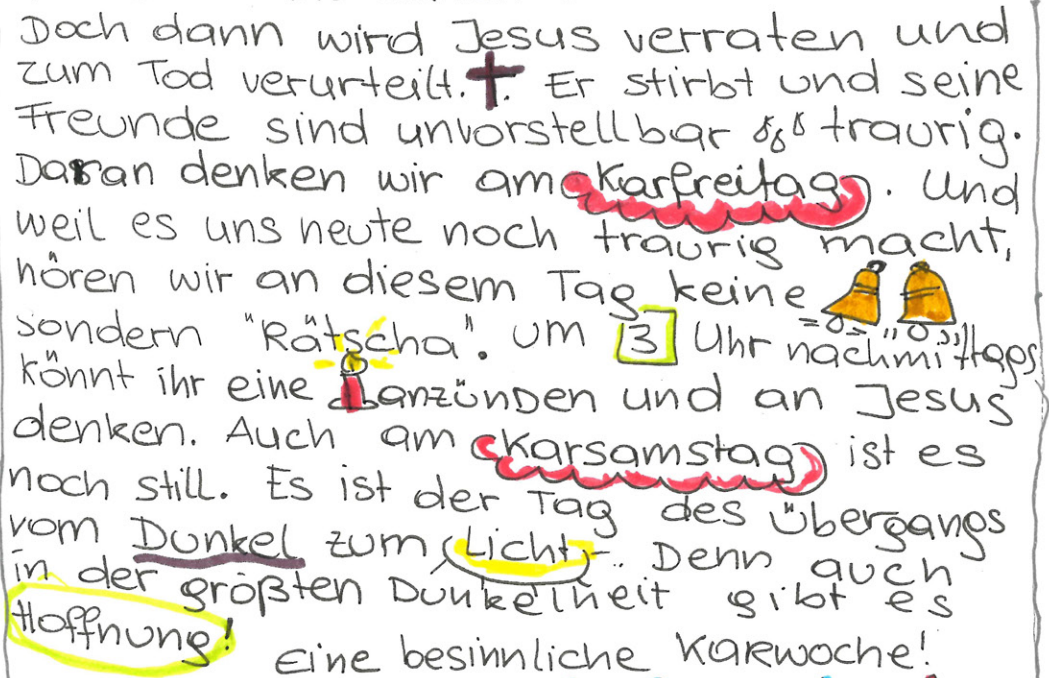 Doch dann wird Jesus verraten und
zum Tod verurteilt. Er stirbt und seine
Freunde sind unvorstellbar traurig.
Daran denken wir am Karfreitag. Und
weil es uns heute noch traurig macht,
hören wir an diesem Tag keine
sondern "Rätscha". Um 3 Uhr nachmittags
könnt ihr eine anzünden und an Jesus
denken. Auch am Karsamstag ist es
noch still. Es ist der Tag des Übergangs
vom Dunkel zum Licht. Denn auch
in der größten Dunkelheit gibt es
Hoffnung!
Eine besinnliche Karwoche!